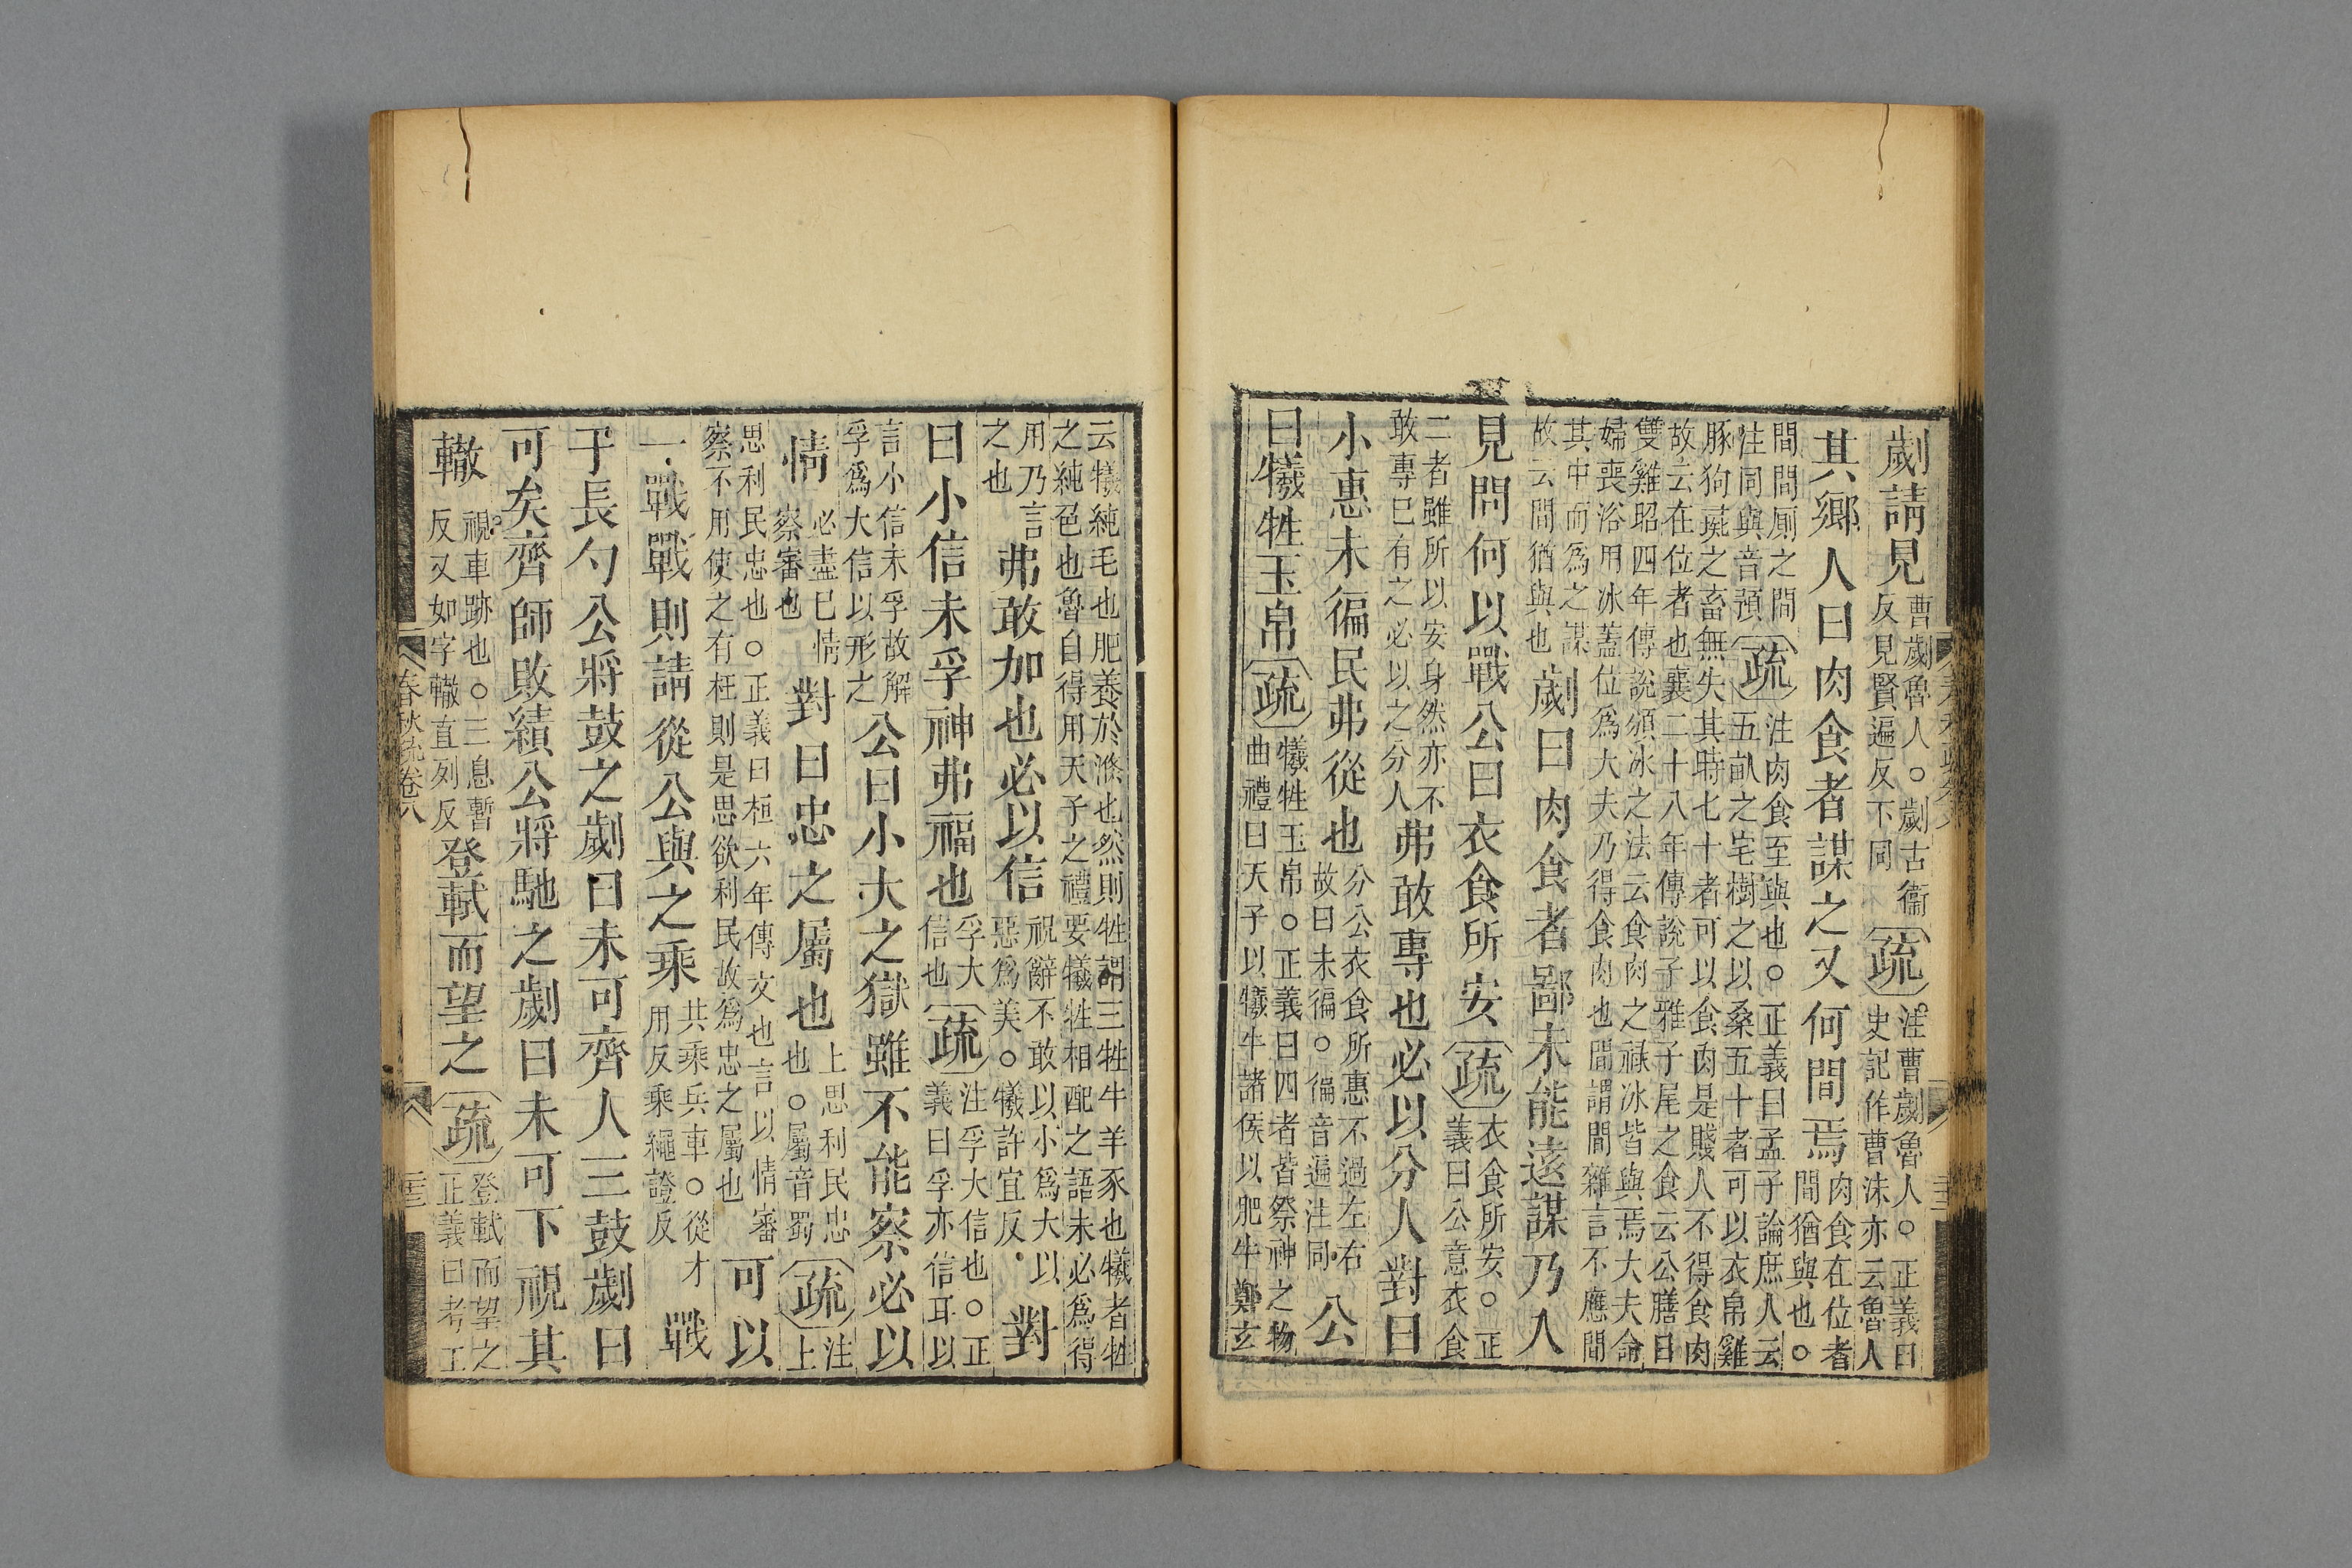 劌請見曹劌魯人。劌古衞
反見賢遍反下同疏注曹劌魯人。正義曰
史記作曹沬亦云魯人
其鄉人曰肉食者謀之又何間焉肉食在位者
間猶與也。
間間厠之間
注同與音預疏注肉食至與也。正義曰孟子論庶人云
五畝之宅樹之以桑五十者可以衣帛雞
豚狗彘之畜無失其時七十者可以食肉是賤人不得食肉
故云在位者也襄二十八年傳說子雅子尾之食云公膳日
雙雞昭四年傳說頒冰之法云食肉之祿冰皆與焉大夫命
婦喪浴用冰蓋位爲大夫乃得食肉也間謂間雜言不應間
其中而爲之謀
故云間猶與也劌曰肉食者鄙未能遠謀乃入
見問何以戰公曰衣食所安疏衣食所安。正
義曰公意衣食
二者雖所以安身然亦不
敢專已有之必以之分人弗敢專也必以分人對曰
小惠未徧民弗從也分公衣食所惠不過左右
故曰未徧。徧音遍注同公
曰犧牲玉帛疏犧牲玉帛。正義曰四者皆祭神之物
曲禮曰天子以犧牛諸侯以肥牛鄭玄
云犧純毛也肥養於滌也然則牲謂三牲牛羊豕也犧者牲
之純色也魯自得用天子之禮要犧牲相配之語未必爲得
用乃言
之也弗敢加也必以信祝辭不敢以小爲大以
惡爲美。犧許宜反對
曰小信未孚神弗福也孚大
信也疏注孚大信也。正
義曰孚亦信耳以
言小信未孚故解
孚爲大信以形之公曰小大之獄雖不能察必以
情必盡已情
察審也對曰忠之屬也上思利民忠
也。屬音蜀疏注
上
思利民忠也。正義曰桓六年傳文也言以情審
察不用使之有枉則是思欲利民故爲忠之屬也可以
一戰戰則請從公與之乘共乘兵車。從才
用反乘繩證反戰
于長勺公將鼓之劌曰未可齊人三鼓劌曰
可矣齊師敗績公將馳之劌曰未可下視其
轍視車跡也。三息暫
反又如字轍直列反登軾而望之疏登軾而望之
正義曰考工
春秋疏卷八